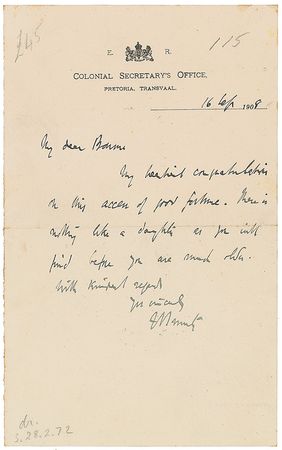 £45
115
E. R.
COLONIAL SECRETARY'S OFFICE,
PRETORIA, TRANSVAAL.
16 Sep 1908
My dear Bourne
My heartiest congratulations
on this access of good fortune. There is
nothing like a daughter as you will
find before you are much older.
With kindest regards
Yrs sincerely
dr.
S. 28.2.72